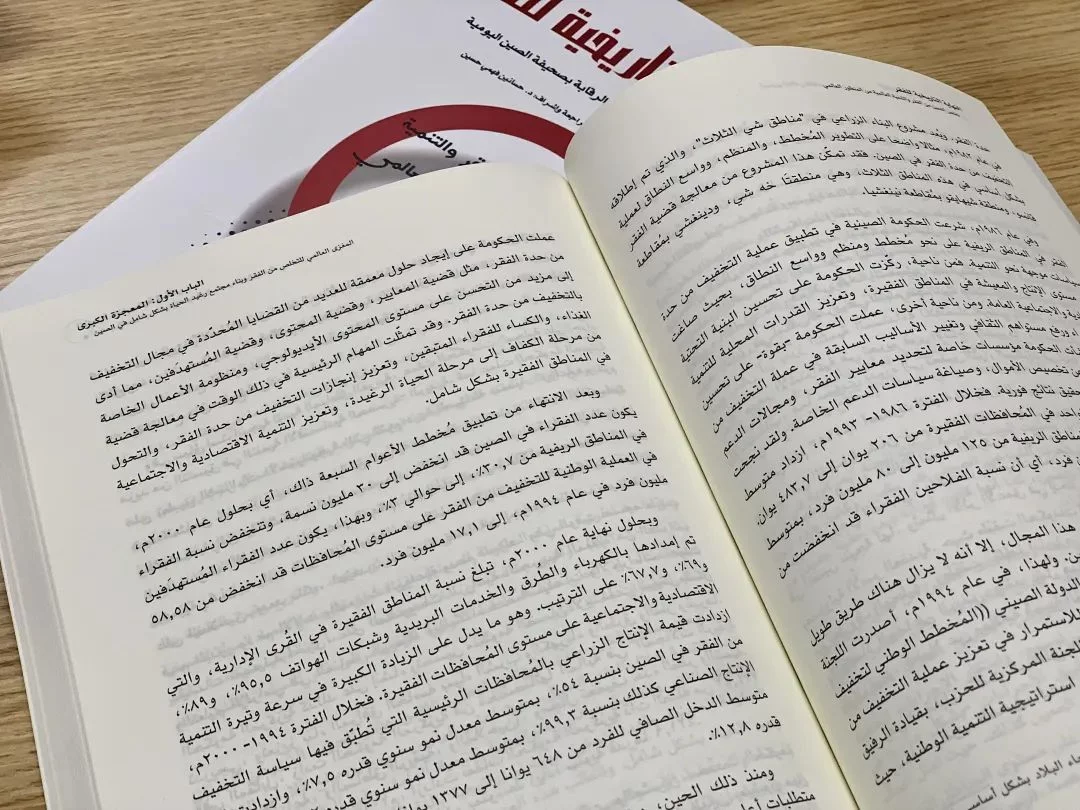 اريخية لل
الرقابة بصحيفة الصين اليومية
راجعة وإشراف: د. حسانين فهمي حسين
قر والتنمية
عالمي
في عام ١٩٨٢م، مثالا واضحا على التطوير المُخطط، والمنظم، وواسع النطاق لعملية
التخفيف من حدة الفقر في الصين. فقد تمكّن هذا المشروع من معالجة قضية الفقر
بشكل أساسي في هذه المناطق الثلاث، وهي منطقتا خه شي، ودينغشي بمُقاطعة
وفي عام ١٩٨٦م، شرعت الحكومة الصينية في تطبيق عملية التخفيف من حدة
الفقر في المناطق الريفية على نحو مُخطط ومنظم وواسع النطاق، بحيث صاغت
سياسات موجهة نحو التنمية. فمن ناحية، ركّزت الحكومة على تحسين البنية التحتية
مستوى الإنتاج والمعيشة في المناطق الفقيرة، وتعزيز القدرات المحلية للتنمية
ية والاجتماعية العامة. ومن ناحية أخرى، عملت الحكومة -بقوة- على تحسين
راء ورفع مستواهم الثقافي وتغيير الأساليب السابقة في عملة التخفيف من
الحكومة مؤسسات خاصة لتحديد معايير الفقر، ومجالات الدعم
تخصيص الأموال، وصياغة سياسات الدعم الخاصة. ولقد نجحت
حقيق نتائج فورية. فخلال الفترة ١٩٨٦- ١٩٩٣م، ازداد متوسط
واحد في المُحافظات الفقيرة من ٢٠٦ يوان إلى ٤٨٣,٧ يوان.
مناطق الريفية من ١٢٥ مليون إلى ٨٠ مليون فرد، بمتوسط
فرد، أي أن نسبة الفلاحين الفقراء قد انخفضت من
هذا المجال، إلا أنه لا يزال هناك طريق طويل
ين. ولهذا، في عام ١٩٩٤م، أصدرت اللجنة
الدولة الصيني ((المُخطط الوطني لتخفيف
للاستمرار في تعزيز عملية التخفيف من
لجنة المركزية للحزب، بقيادة الرفيق
استراتيجية التنمية الوطنية، حيث
اء البلاد بشكل أساسي
الباب الأول: المعجزة الكبرى
المغزى العالمي للتخلص من الفقر وبناء مجتمع رغيد الحياة بشكل شامل في الصين
عملت الحكومة على إيجاد حلول معمقة للعديد من القضايا المُحدّدة في مجال التخفيف
من حدة الفقر، مثل قضية المعايير، وقضية المحتوى، وقضية المُستهدَفين، مما أدى
إلى مزيد من التحسن على مستوى المحتوى الأيديولوجي، ومنظومة الأعمال الخاصة
بالتخفيف من حدة الفقر. وقد تمثّلت المهام الرئيسية في ذلك الوقت في معالجة قضية
الغذاء، والكساء للفقراء المتبقين، وتعزيز إنجازات التخفيف من حدة الفقر، والتحول
من مرحلة الكفاف إلى مرحلة الحياة الرغيدة، وتعزيز التنمية الاقتصادية والاجتماعية
في المناطق الفقيرة بشكل شامل.
وبعد الانتهاء من تطبيق مُخطط الأعوام السبعة ذاك، أي بحلول عام ٢٠٠٠م،
يكون عدد الفقراء في الصين قد انخفض إلى ٣٠ مليون نسمة، وتنخفض نسبة الفقراء
في المناطق الريفية من ٣٠,٧٪، إلى حوالي ٣٪، وبهذا، يكون عدد الفقراء المُستهدَفين
في العملية الوطنية للتخفيف من الفقر على مستوى المُحافظات قد انخفض من ٥٨,٥٨
مليون فرد في عام ١٩٩٤م، إلى ١٧,١ مليون فرد.
وبحلول نهاية عام ٢٠٠٠م، تبلغ نسبة المناطق الفقيرة في القُرى الإدارية، والتي
تم إمدادها بالكهرباء والطُرق والخدمات البريدية وشبكات الهواتف ٩٥,٥٪، و٨٩٪،
و٦٩٪، و٦٧,٧٪ على الترتيب. وهو ما يدل على الزيادة الكبيرة في سرعة وتيرة التنمية
الاقتصادية والاجتماعية على مستوى المُحافظات الفقيرة. فخلال الفترة ١٩٩٤-٢٠٠٠م،
ازدادت قيمة الإنتاج الزراعي بالمُحافظات الرئيسية التي تُطبّق فيها سياسة التخفيف
من الفقر في الصين بنسبة ٥٤٪، بمتوسط معدل نمو سنوي قدره ٧,٥٪، وازدادت
الإنتاج الصناعي كذلك بنسبة ٩٩,٣٪، بمتوسط معدل نمو سنوي قدره
متوسط الدخل الصافي للفرد من ٦٤٨ يوانا إلى ١٣٣٧ يوانا
قدره ١٢,٨٪.
ومنذ ذلك الحين،
متطلبات